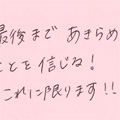 最後まで あきらめ
ことを信じね!
これに限ります!!